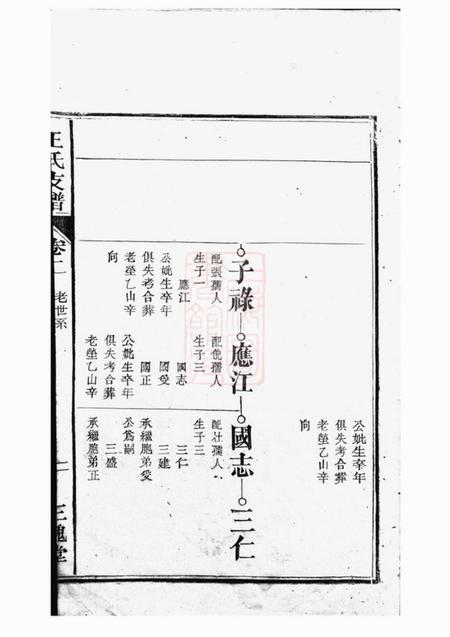 公妣生卒年
俱失考合葬
老塋乙山辛
向
子祿
應江
國志
三仁
配張孺人
生子一
應江
公妣生卒年
俱失考合葬
老塋乙山辛
向
配倪孺人
生子三
國志
國受
國正
公妣生卒年
俱失考合葬
老塋乙山辛
配杜孺人
生子三
三仁
三建
承繼胞弟受
公爲嗣
三盛
承繼胞弟正
王氏支譜
卷二
老世系
三槐堂